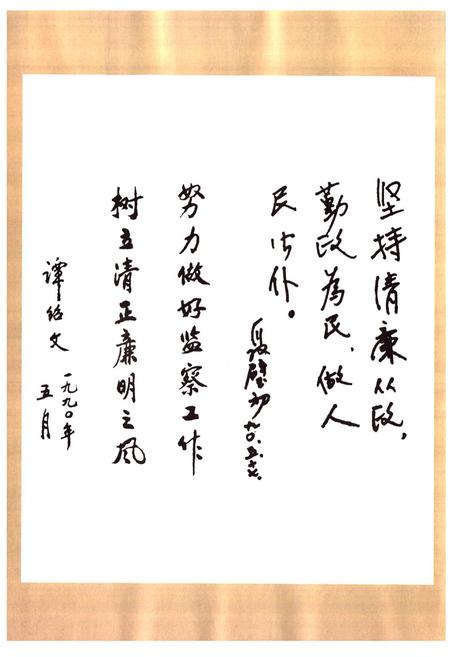 坚持清廉从政，
勤政为民，做人
民公仆。
聂璧初
九〇.五.六.
努力做好监察工作
树立清正廉明之风
谭绍文
一九九〇年
五月